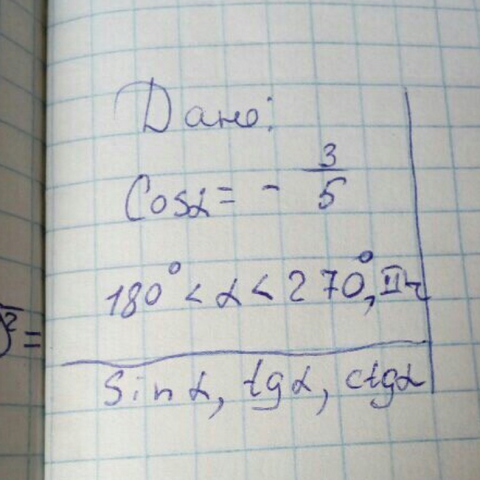 Дано:
Cosα = - 3/5
180° < α < 270°, II ч
Sin α, tgα, ctgα